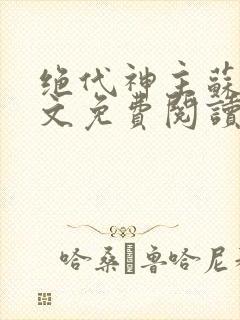 绝代神主蘇
文免費閱讀
哈桑·鲁哈尼